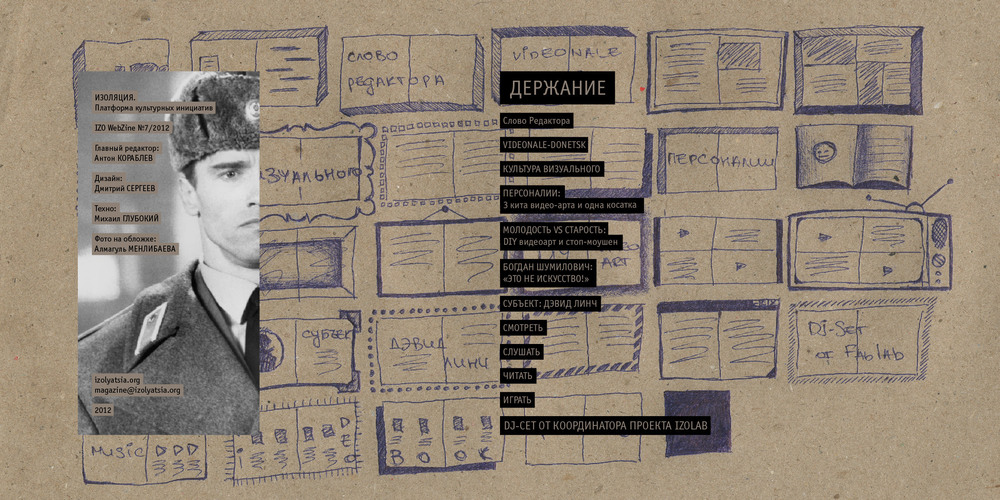 ИЗОЛЯЦИЯ.
Платформа культурных инициатив
IZO WebZine №7/2012
Главный редактор:
Антон КОРАБЛЕВ
Дизайн:
Дмитрий СЕРГЕЕВ
Техно:
Михаил ГЛУБОКИЙ
Фото на обложке:
Алмагуль МЕНЛИБАЕВА
izolyatsia.org
magazine@izolyatsia.org
2012
ДЕРЖАНИЕ
Слово Редактора
VIDEONALE-DONETSK
КУЛЬТУРА ВИЗУАЛЬНОГО
ПЕРСОНАЛИИ:
3 кита видео-арта и одна косатка
МОЛОДОСТЬ VS СТАРОСТЬ:
DIY видеоарт и стоп-моушен
БОГДАН ШУМИЛОВИЧ:
«ЭТО НЕ ИСКУССТВО!»
СУБЪЕКТ: ДЭВИД ЛИНЧ
СМОТРЕТЬ
СЛУШАТЬ
ЧИТАТЬ
ИГРАТЬ
DJ-СЕТ ОТ КООРДИНАТОРА ПРОЕКТА IZOLAB
СЛОВО
РЕДАКТОРА
VIDEONALE
ЗУАЛЬНОГО
ПЕРСОНАЛИИ
ART
СУБЪЕК
ДЭВИД
ЛИНЧ
DJ-Set
от Fablab
Music
BOOK